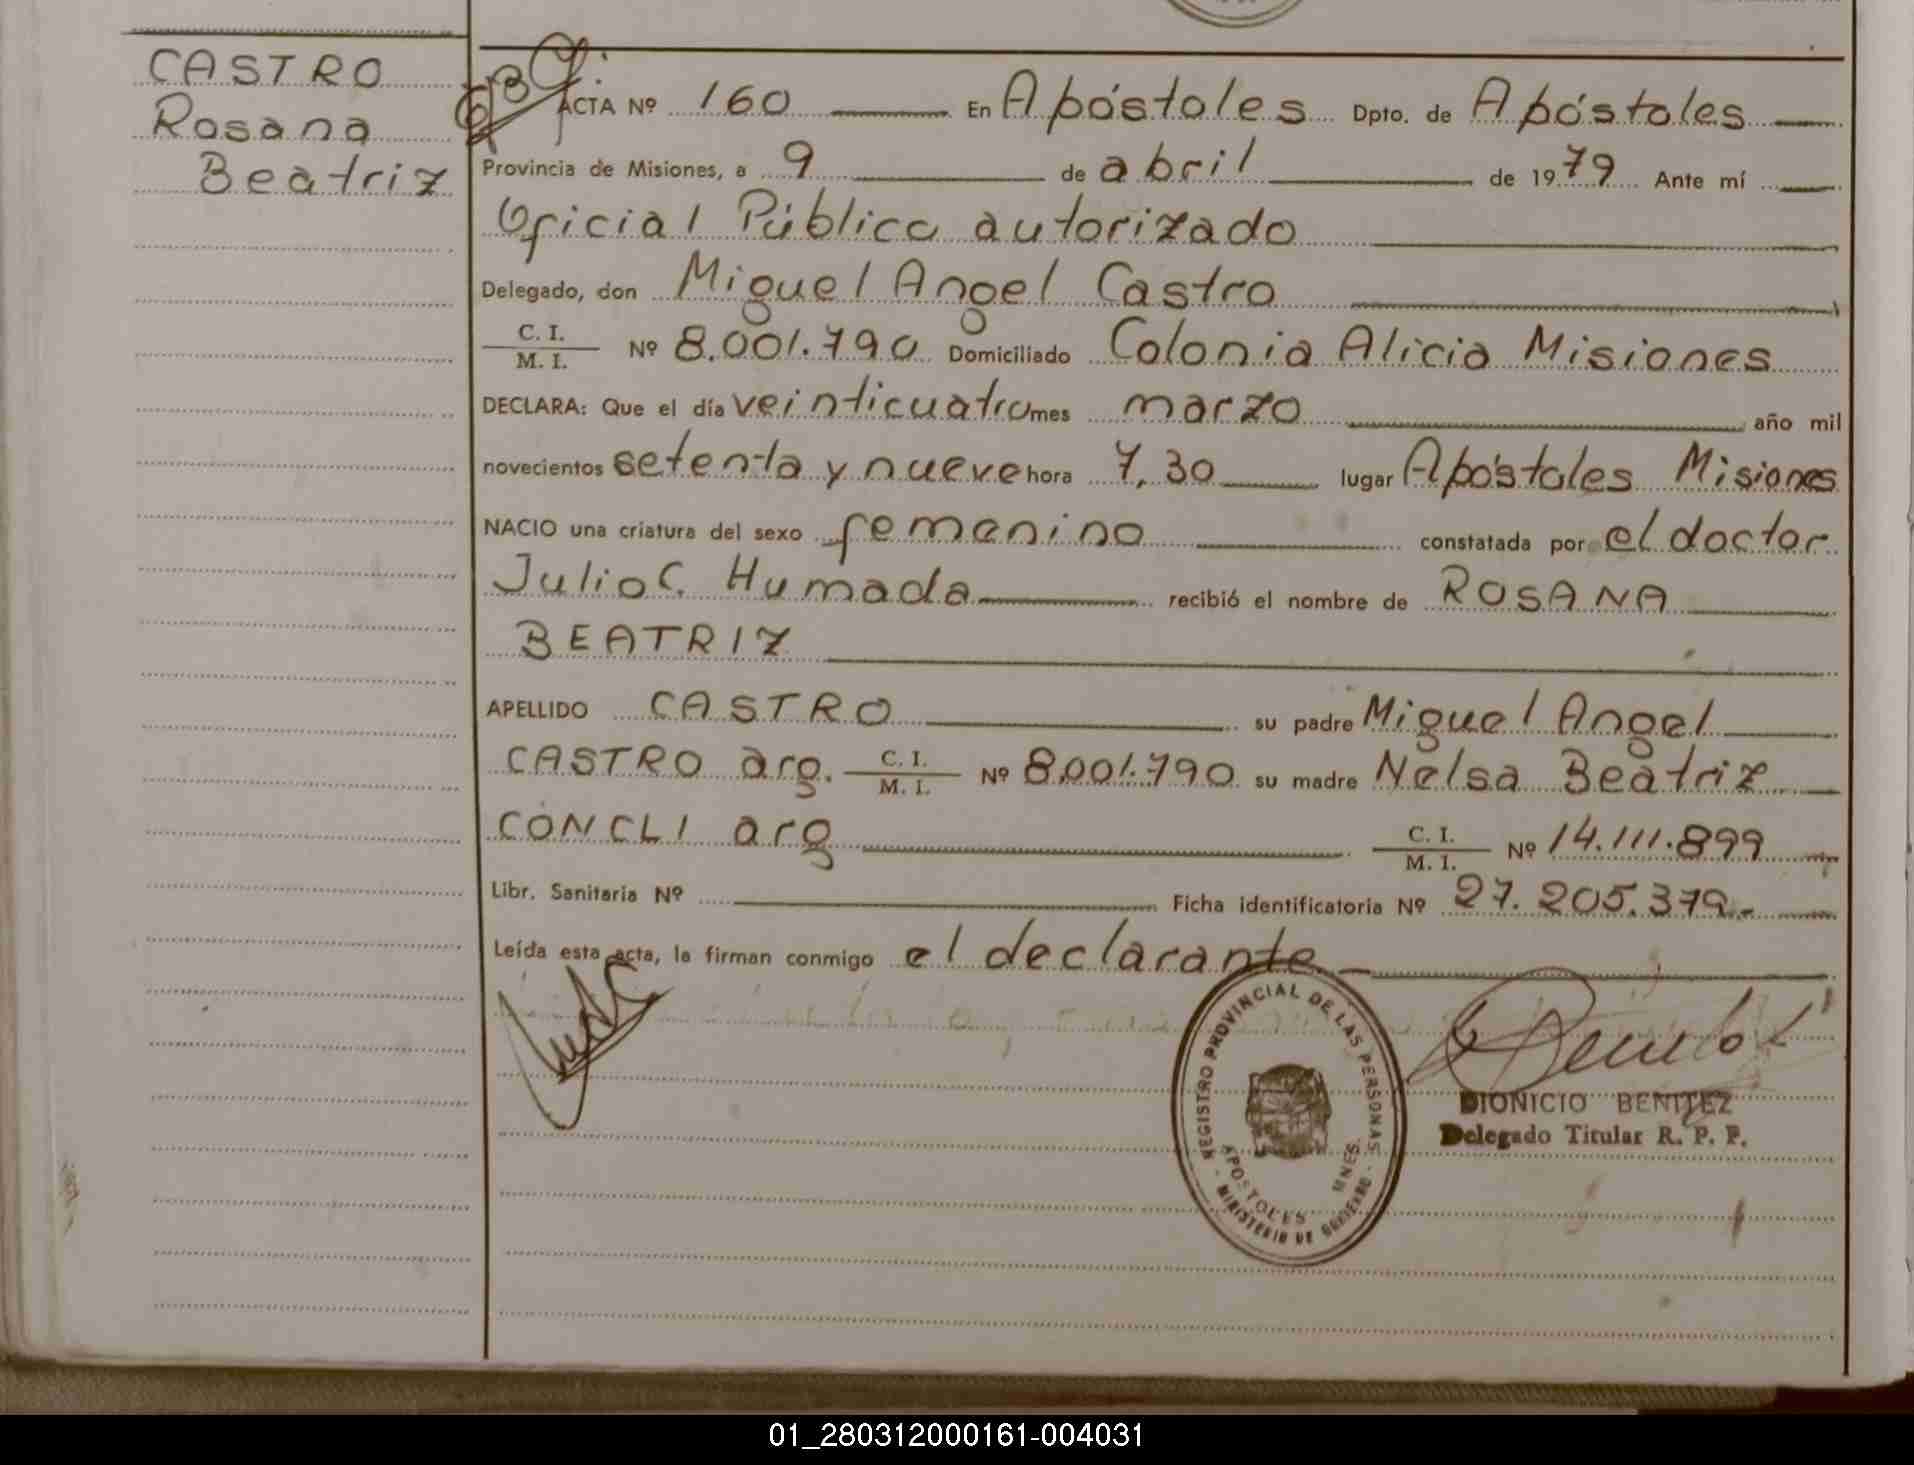 CASTRO
Rosana
Beatriz
ACTA Nº 160 En Apóstoles Dpto. de Apóstoles
Provincia de Misiones, a 9 de abril de 1979 Ante mí
Oficial Público autorizado
Delegado, don Miguel Angel Castro
C. I.
M. I. Nº 8.001.790 Domiciliado Colonia Alicia Misiones
DECLARA: Que el día veinticuatro mes marzo año mil
novecientos setenta y nueve hora 7,30 lugar Apóstoles Misiones
NACIO una criatura del sexo femenino constatada por el doctor
Julio C. Humada recibió el nombre de ROSANA
BEATRIZ
APELLIDO CASTRO su padre Miguel Angel
CASTRO arg. C. I. M. I. Nº 8.001.790 su madre Nelsa Beatriz
CONCLI arg C. I. M. I. Nº 14.111.899
Libr. Sanitaria Nº Ficha identificatoria Nº 27.205.379.-
Leída esta acta, la firman conmigo el declarante.-
REGISTRO PROVINCIAL DE LAS PERSONAS
APOSTOLES MNES.
- MINISTERIO DE GOBIERNO -
DIONICIO BENITEZ
Delegado Titular R. P. P.
01_280312000161-004031